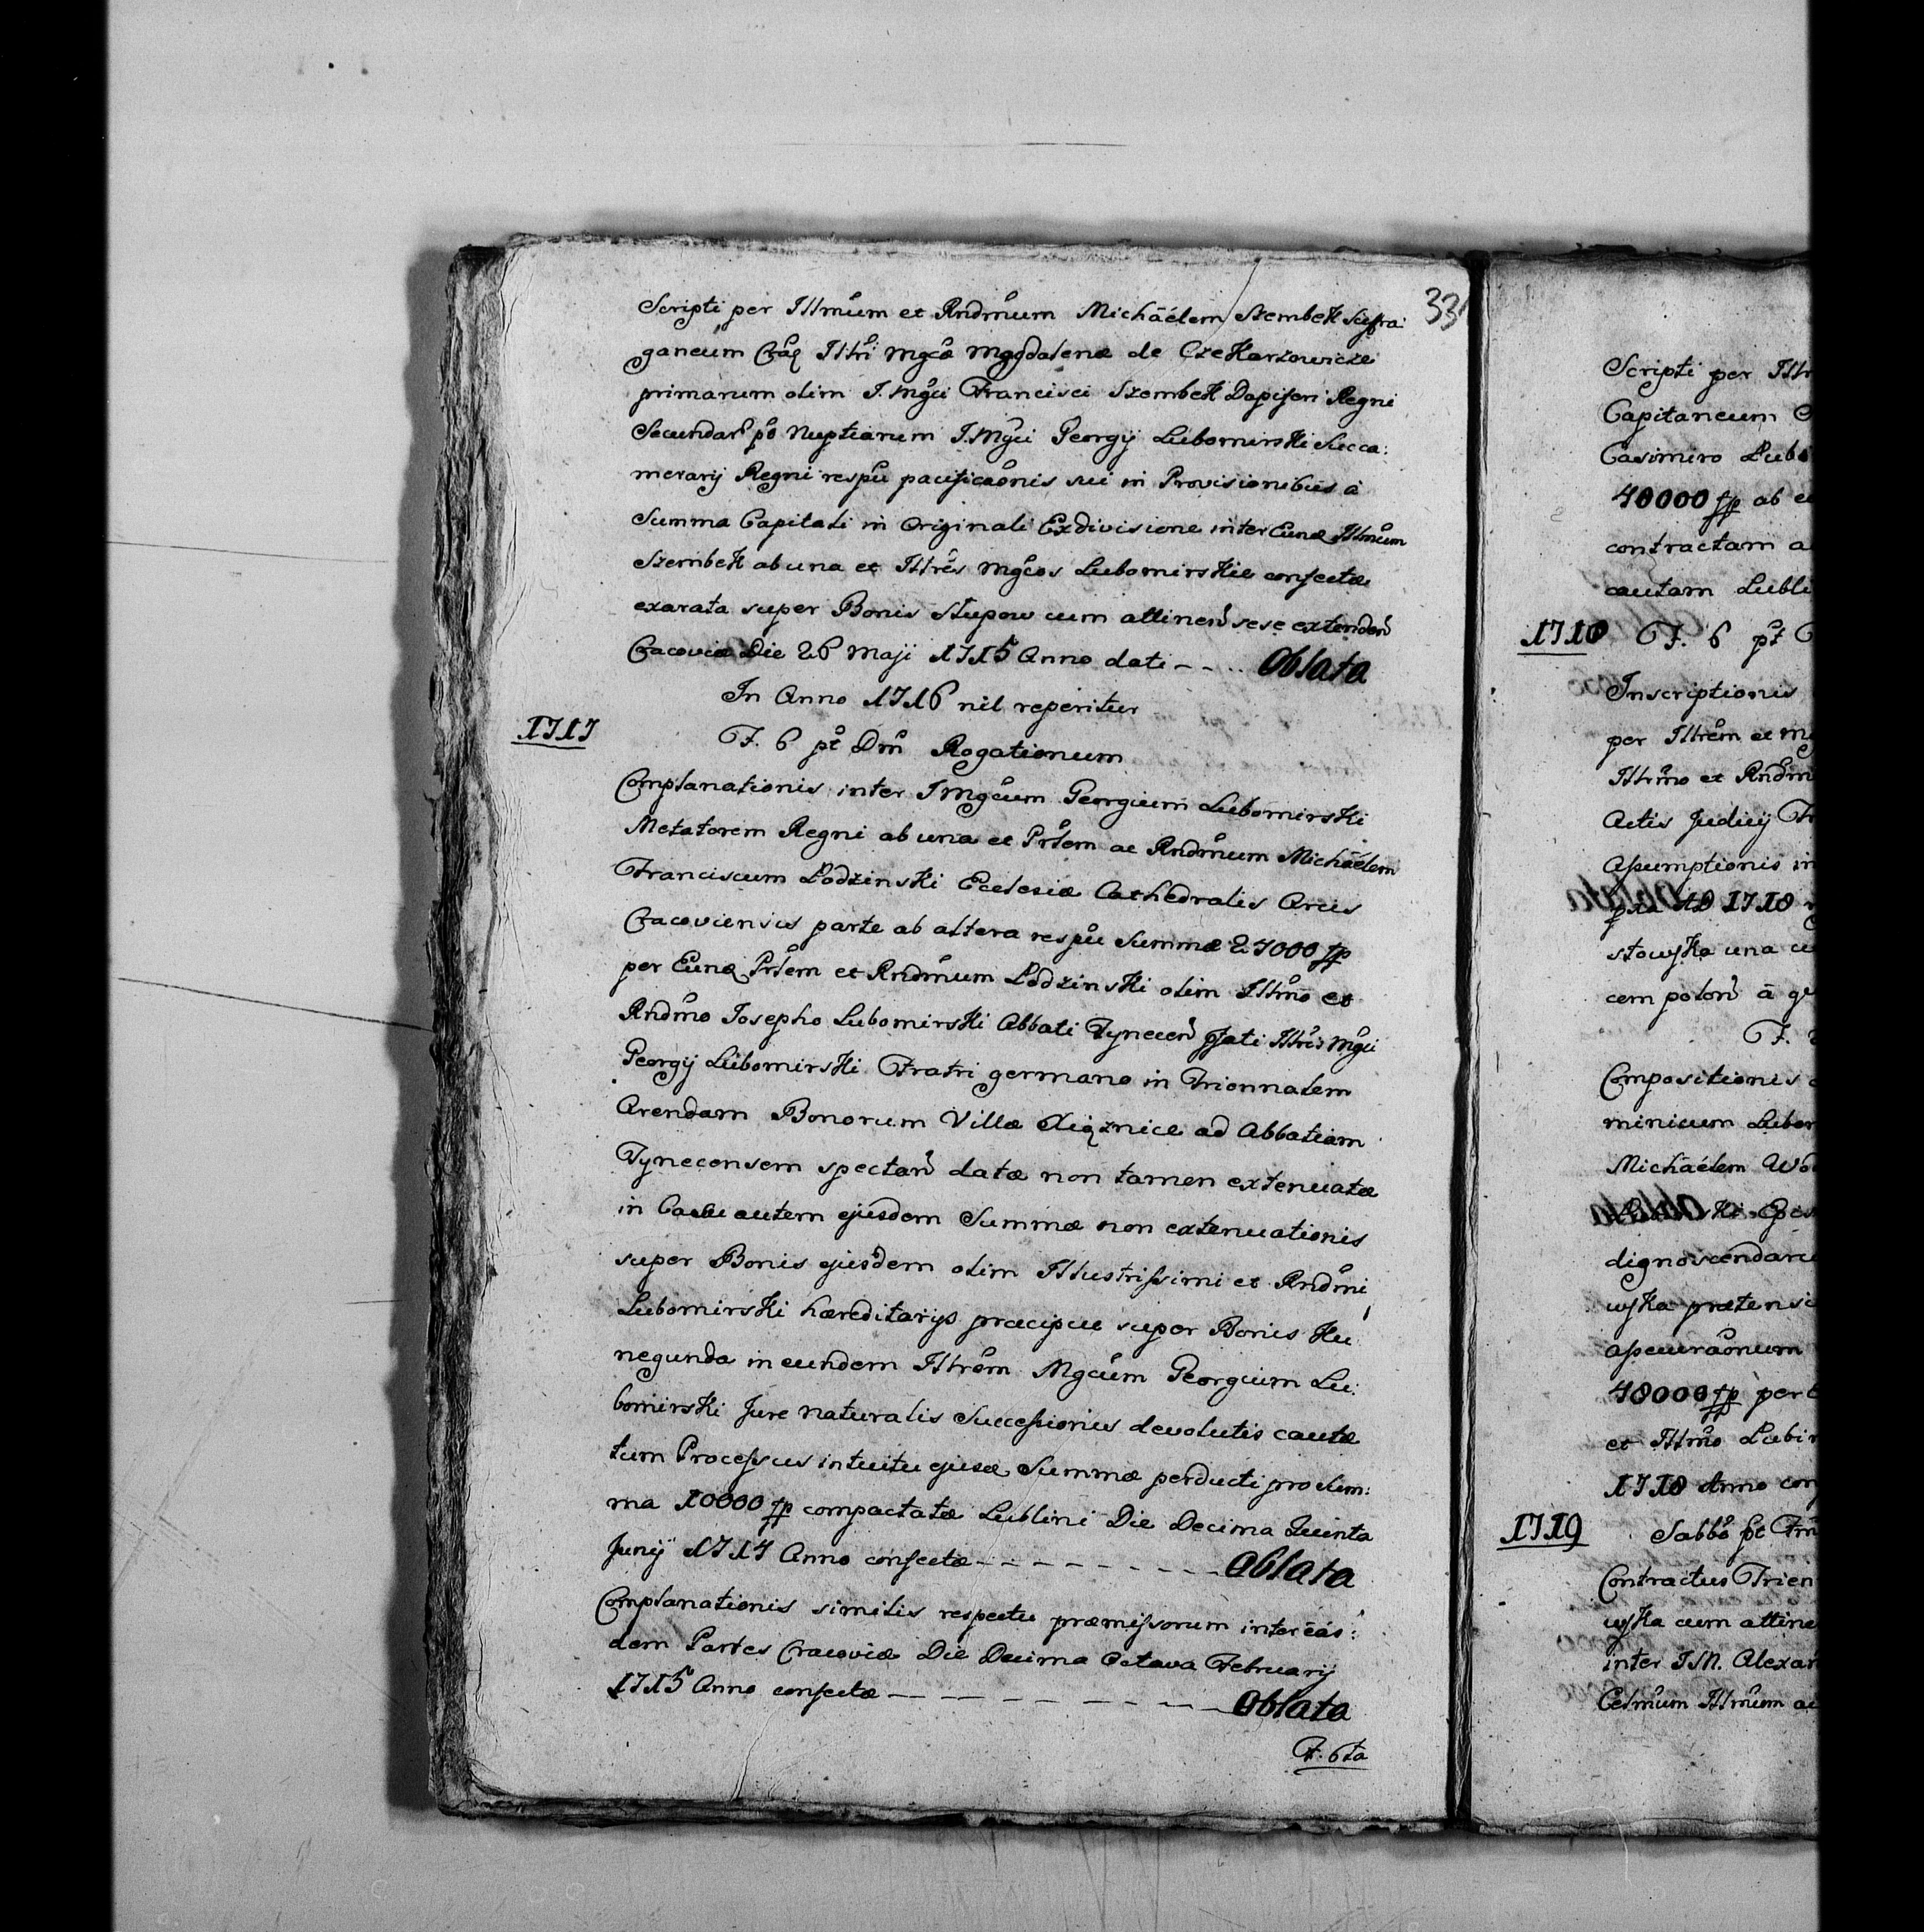 33
Scripti per Illmum et Rndmum Michäélem Szembek Sufra-
ganeum Crac Illri Mgcæ Magdalenæ de Czekarzowicze
primarum olim I. Mgci Francisci Szembek Dapiferi Regni
Secundar po Nuptiarum I. Mgci Georgij Lubomirski Succa:
merarij Regni respu pacificaonis sui in Provisionibus à
Summa Capitali in Originali Exdivisione inter Eund Illmum
Szembek ab una et Illres Mgcos Lubomirskie confectæ
exarata super Bonis Słupow cum attinen sese extenden
Cracoviæ Die 26 Maji 1715 Anno dati - - .. Oblata
In Anno 1716 nil reperitur
1717
F. 6 pt Dm Rogationum
Complanationis inter I Mgcum Georgium Lubomirski
Metatorem Regni ab una et Prlem ac Rndmum Michäélem
Franciscum Łodzinski Eclesiæ Cathedralis Arcis
Cracoviensis parte ab altera respu Summæ 24000 fp
per Eund Prlem et Rndmum Łodzinski olim Illmo et
Rndmo Josepho Lubomirski Abbati Tynecen pfati Illris Mgci
Georgij Lubomirski Fratri germano in Triennalem
Arendam Bonorum Villæ Xiąznice ad Abbatiam
Tynecensem spectan datæ non tamen extenuatæ
in Casu autem ejusdem Summæ non extenuationis
super Bonis ejusdem olim Illustrissimi et Rndmi
Lubomirski hæreditarijs præcipue super Bonis Ku
negunda in eundem Illrem Mgcum Georgium Lu:
bomirski Jure naturalis Successionis devolutis cautæ
tum Processus intuitu ejusd Summæ perducti pro sum:
ma 10000 fp compactatæ Lublini Die Decima Quinta
Junij 1714 Anno confectæ - - - - - - - - Oblata
Complanationis similis respectu præmissorum inter eas:
dem Partes Cracoviæ Die Decima Octava Februarij
1715 Anno confectæ - - - - - - - - Oblata
F. 6ta
Scripti per Illr
Capitaneum
Casimiro Lubo
40000 fp ab
contractam a
cautam Lubli
1718 F. 6 pt
Inscriptionis
per Illrem et
Illrmo et Rndm
Actis Judicij
Assumptionis in
1718
una
F.
Compositionis
minicum Lubom
Michäélem
dignoscendar
pretensi
40000 fp per
et Illmo Lubi
1718 Anno con
1719 Sabbo pt
Contractus Trien
cum attine
inter I M. Alexan
Celmum Illmum ac